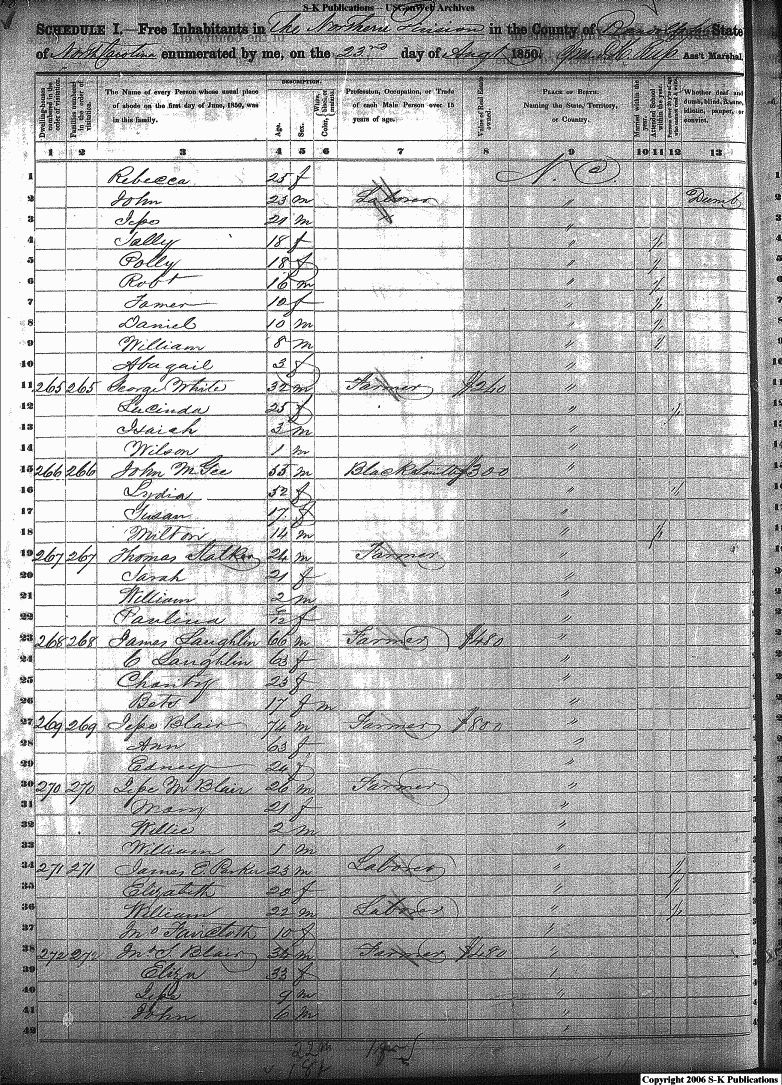 S-K Publications - USGenWeb Archives
SCHEDULE I.—Free Inhabitants in The Northern Division in the County of Randolph State
of North Carolina enumerated by me, on the 23rd day of Augt 1850. Ass't Marshal
DESCRIPTION.
Dwelling-houses numbered in the order of visitation. Families numbered in the order of visitation. The Name of every Person whose usual place of abode on the first day of June, 1850, was in this family. Age. Sex. Color, White, black, or mulatto. Profession, Occupation, or Trade of each Male Person over 15 years of age. Value of Real Estate owned. PLACE OF BIRTH. Naming the State, Territory, or Country. Married within the year. Attended School within the year. Whether deaf and dumb, blind, insane, idiotic, pauper, or convict.
1 2 3 4 5 6 7 8 9 10 11 12 13
1 Rebecca 25 f N. C
2 John 23 m Laborer " Dumb
3 Jesse 21 m "
4 Sally 18 f " /
5 Polly 18 f " /
6 Robt 16 m " /
7 Tamer 10 f " /
8 Daniel 10 m " /
9 William 8 m " /
10 Abagail 3 f "
11 265 265 George White 32 m Farmer $240 "
12 Lucinda 25 f " /
13 Isaiah 3 m "
14 Wilson 1 m "
15 266 266 John McGee 55 m Blacksmith $300 "
16 Lydia 52 f " /
17 Susan 17 f "
18 Milton 14 m " /
19 267 267 Thomas 24 m Farmer
20 Sarah 21 f "
21 William 2 m "
22 Paulina /12 f "
23 268 268 James Laughlin 66 m Farmer $480 "
24 C Laughlin 63 f "
25 Charity 23 f "
26 Bets 17 f m "
27 269 269 Jesse Blair 74 m Farmer $800 "
28 Ann 63 f "
29 Edney 24 f "
30 270 270 Jesse M Blair 26 m Farmer "
31 Mary 21 f "
32 Willie 2 m "
33 William 1 m "
34 271 271 James E. Parker 23 m Laborer " /
35 Elizabeth 20 f " /
36 William 22 m Laborer " /
37 10 f "
38 272 272 Jno S. Blair 34 m Farmer $480 "
39 Eliza 33 f "
40 Jesse 9 m "
41 John 6 m "
42 "
Copyright 2006 S-K Publications